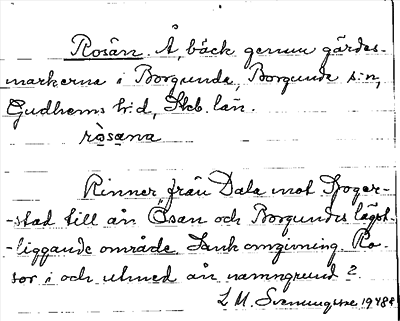 Rosån. Å, bäck genom gärdes-
markerna i Borgunda, Borgunda s:n,
Gudhems h:d, Skb. län.
rosana
Rinner från Dala mot Stoger-
-stad till ån Ösan och Borgundas lägst-
-liggande område. Sank omgivning. Ro-
sor i och utmed ån namngrund?
L M. Svenungsson 1948